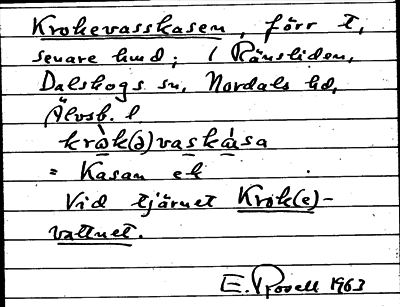 Krokevasskasen, förr t,
senare hmd; i Ränsliden,
Dalskogs sn, Nordals hd,
Älvsb. l
krok(ə)vaskasa
= Kasan ek
Vid tjärnet Krok(e)-
vattnet.
E. Rosell 1963